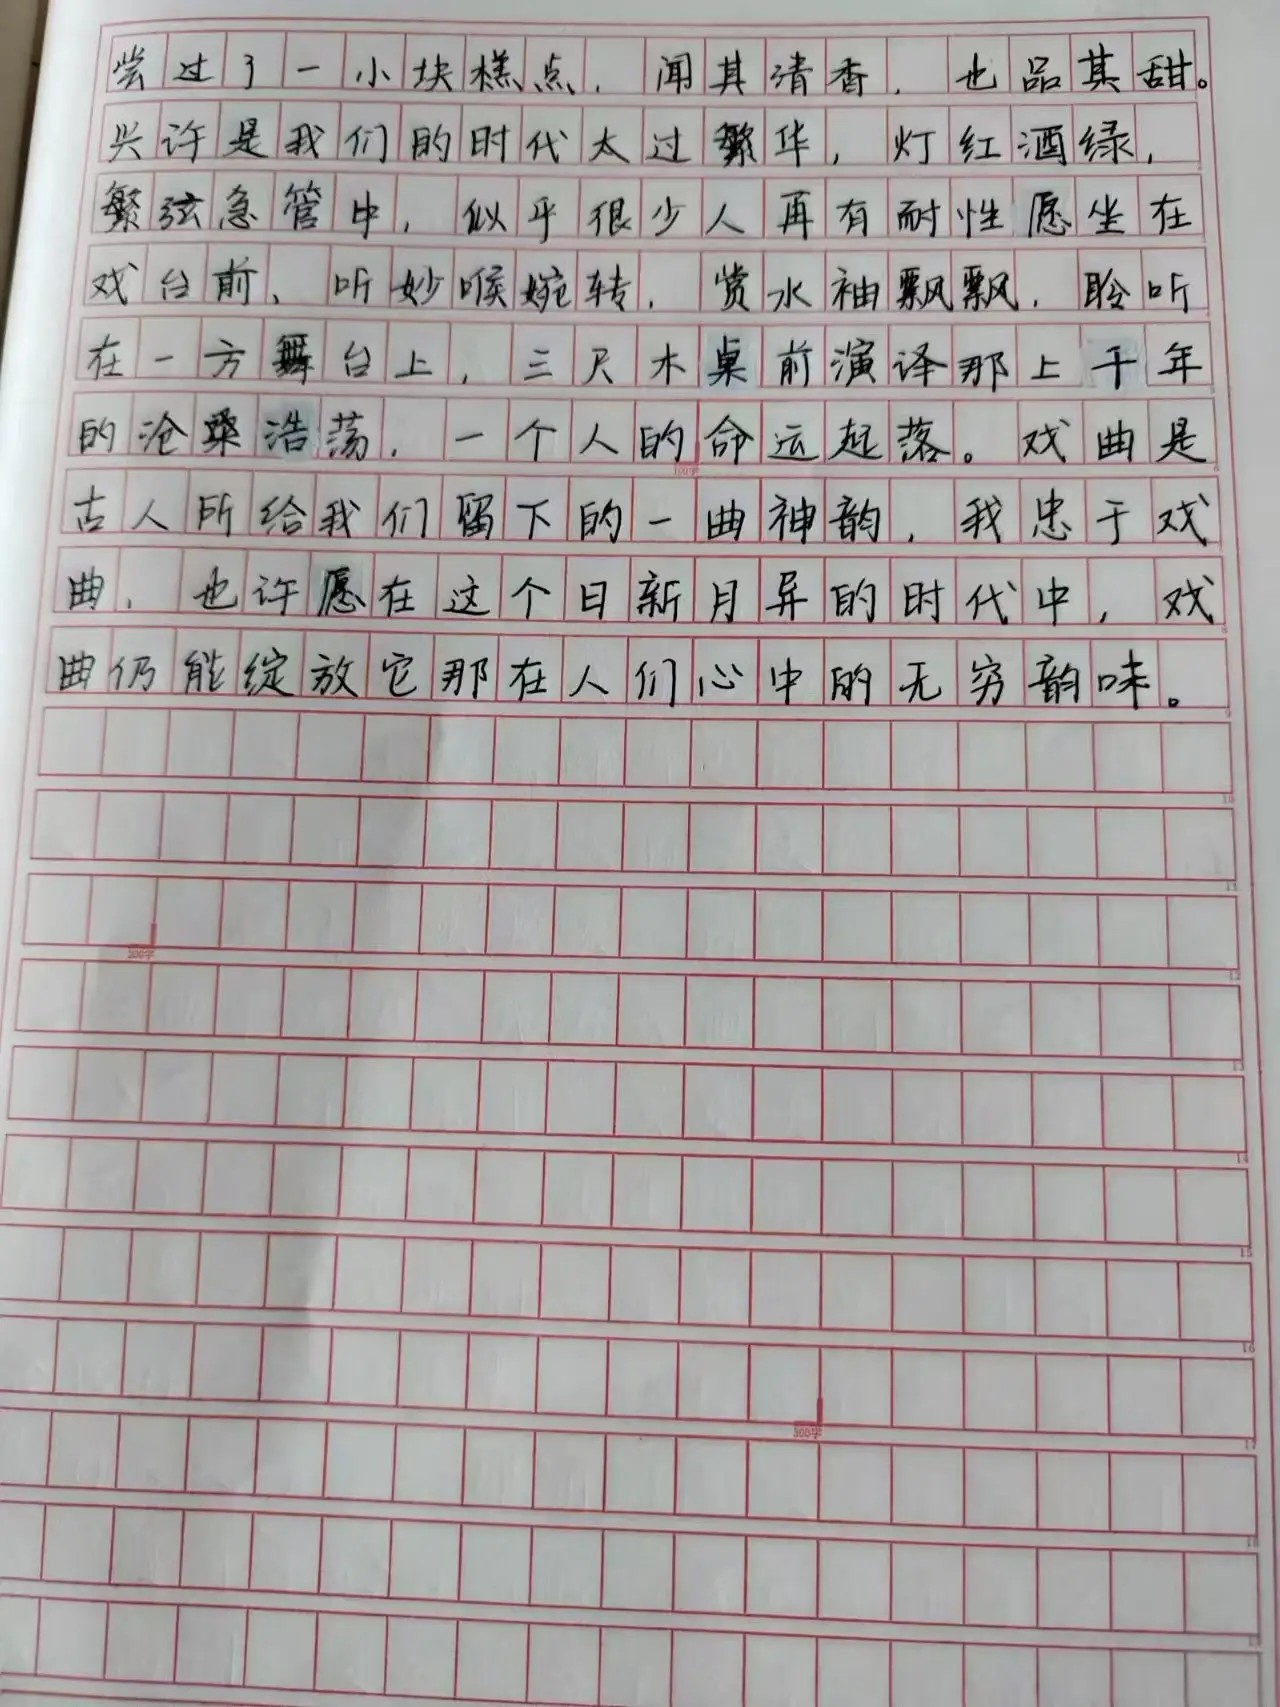 尝过了一小块糕点，闻其清香，也品其甜。
兴许是我们的时代太过繁华，灯红酒绿，
繁弦急管中，似乎很少人再有耐性愿坐在
戏台前，听妙喉婉转，赏水袖飘飘，聆听
在一方舞台上，三尺木桌前演译那上千年
的沧桑浩荡，一个人的命运起落。戏曲是
100字
古人所给我们留下的一曲神韵，我忠于戏
曲，也许愿在这个日新月异的时代中，戏
曲仍能绽放它那在人们心中的无穷韵味。
9
10
11
200字
12
13
14
15
16
300字
17
18
19